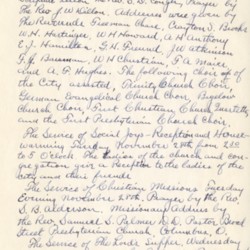 the Rev. J. W. Dillon, Addresses were given by
the Reverends Freeman Chase, Crayton S. Brooks
W. H. Hostinger, W. H. Howard, A. H. Anthony
E. J. Humilton, G. H. Pound, J. W. Atkinson,
F. J. Bussman, W. H. Christian, F. A. Maice
and A. P. Hughes. The following choir of
the City assisted, Trinity Church Choir,
German Evangelical Church Choir, Baptist
Church Choir, First Christian Church Quartette
and the First Presbyterian Church Choir.
The Service of Social Joys - Reception and House-
warming Friday November 24th from 2:30
to 5 O'clock. The ladies of the church and con-
gregation give a Reception to the ladies of the
city and their friends
The Service of Christian Missions Tuesday
Evening November 28th, Prayer by the Rev.
S. B. Alderson. Missionary Address by
the Rev. Samuel S. Palmer D.D. Pastor Broad
Street Presbyterian Church, Columbus, O.
The Service of The Lord's Supper, Wednesday